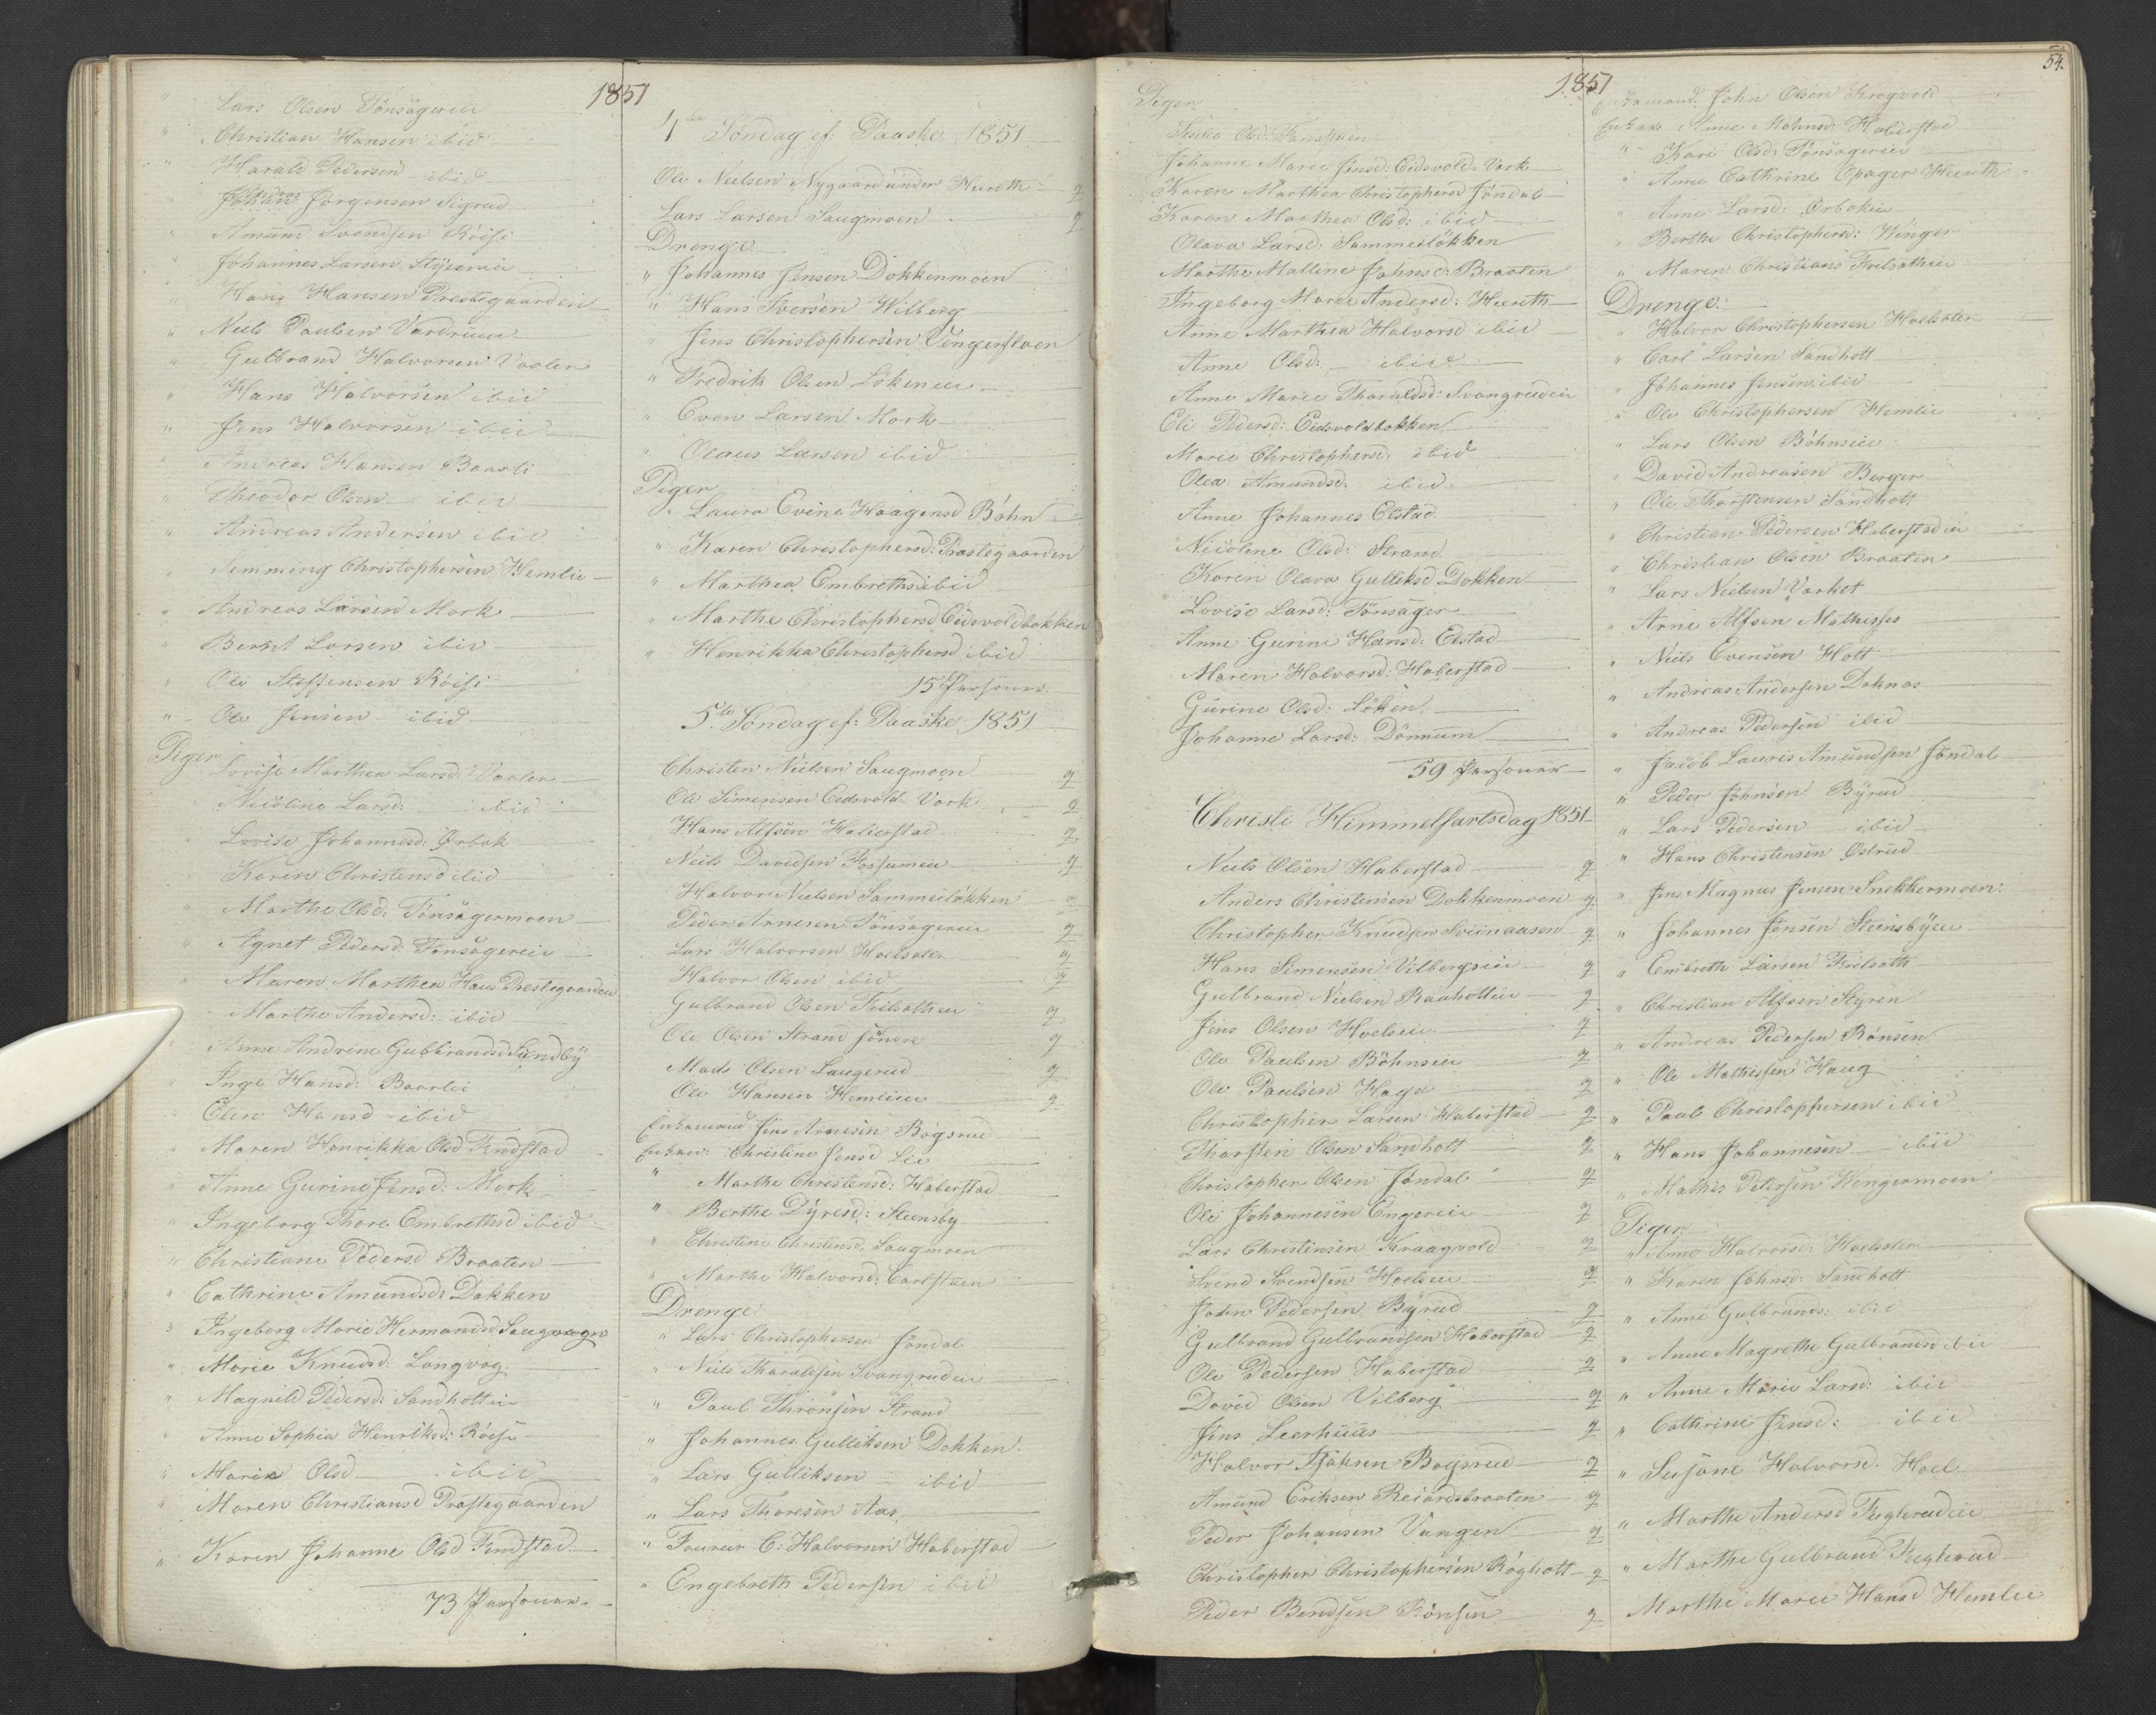 1851
" Lars Olsen Tönsågereie
" Christian Hansen ibid
" Harald Pedersen ibid
" Johan Jörgensen Sigrud
" Amund Svendsen Röise
" Johannes Larsen
" Hans Hansen Prestegaardeie
" Niels Paulsen
" Gulbrand Halvorsen Vaalen
" Hans Halvorsen ibid
" Jens Halvorsen ibid
" Andreas Hansen Baarli
" Theodor Olsen ibid
" Andreas Andersen ibid
" Semming Christophersen Hemlie
" Andreas Larsen Mork
" Bernt Larsen ibid
" Ole Steffensen Röise
" Ole Jensen ibid
Piger
Lovise Marthea Larsd: Vaalen
Nicoline Larsd: ibid
" Lovise Johannesd: Ørbak
Karen Christensd ibid
" Marthe Olsd: Tönsagermoen
" Agnet Pedersd: Tonsågereie
" Maren Marthea Hans Prestegaarden
" Marthe Andersd: ibid
" Anne Andrine Gulbrandsd Sundby
" Inge Hansd: Baarlie
" Elen Hansd ibid
" Maren Henrikka Olsd Findstad
" Anne Gurine Jensd: Mork
" Ingeborg Thore Embrethsd ibid
" Christiane Pedersd Braaten
" Cathrine Amundsd: Dokken
" Ingeborg Marie Hermandsd Saugvogn
" Marie Knudsd: Langvog
" Magnild Pedersd: Sandholteie
" Anne Sophia Henriksd: Röise
" Marie Olsd ibid
" Maren Christiansd Præstegaarden
" Karen Johanne Olsd Findstad
73 Personer
4de Söndag ef: Paaske 1851
Ole Neilsen Nygaard under Hureth g
Lars Larsen Saugmoen g
Drenge
" Johannes Jensen Dokkenmoen
" Hans Iversen Wilberg
" Jens Christophersen Vengerfloen
" Fredrik Olsen Lökeneie
" Even Larsen Mork
" Olaus Larsen ibid
Piger
" Laura Evine Haagensd Böhn
" Karen Christophersd: Prastegaarden
" Marthea Embrethsd ibid
" Marthe Christophersd Eidsvoldbakken
" Henrikka Christophersd ibid
15 Personer
5te Söndag ef: Paaske 1851
Christen Nielsen Saugmoen g
Ole Simensen Eidsvold Vark g
Hans Alfsen Haberstad g
Neils Davidsen Fossumeie g
Halvor Nielsen Sammeilökken g
Peder Arnesen Tönsagereie g
Lars Halvorsen Hoelsateie g
Halvor Olsen ibid g
Gulbrand Olsen Frilsatheie g
Ole Olsen Strand söndre g
Mads Olsen Laugerud g
Ole Hansen Hemlieie g
Enkemand Jens Arnesen Bögsrud
Enken: Christine Jensd Lie
" Marthe Christensd: Haberstad
" Berthe Dyresd: Steensby
" Christine Christensd. Saugmoen
" Marthe Halvorsd: Carlstuen
Drenge:
" Lars Christophersen Jöndal
" Niels Tharaldsen Svangrudeie
" Paul Thronsen Strand
" Johannes Gulliksen Dokken
" Lars Gulliksen ibid
" Lars Thoresen Aas
" C: Halvorsen Haberstad
" Engebreth Pedersen ibid
1851
54.
Piger
Olsd:
Johanne Marie Jensd: Eidsvold-Vark
Karen Marthea Christophersd Jöndal
Karen Marthea Olsd: ibid
Olava Larsd: Sammeilökken
Marthe Malline Johnsd: Braaten
Ingeborg Marie Andersd: Hureth
Anne Marthea Halvorsd ibid
Anne Olsd: ibid
Anne Marie Tharaldsd: Svangrudeie
Eli Pedersd: Eidsvoldbakken
Marie Christophersd: ibid
Olea Amundsd: ibid
Anne Johannes Elstad
Nicoline Olsd: Strand
Karen Olava Gulliksd Dokken
Lovise Larsd: Tönsager
Anne Gurine Hansd: Elstad
Maren Halvorsd: Haberstad
Gurine Olsd: Löken
Johanne Larsd: Dönnum
59 Personer
Christi Himmelfartsdag 1851
Niels Olsen Haberstad g
Anders Christensen Dokkenmoen g
Christopher Knudsen Sviinaasen g
Hans Simensen Vilbergseie g
Gulbrand Nielsen Raaholteie g
Jens Olsen Hoelseie g
Ole Paulsen Böhnseie g
Ole Paulsen Haga g
Christopher Larsen Haberstad g
Thorsten Olsen Sandholt g
Christopher Olsen Jöndal g
Ole Johannesen Engereie g
Lars Christensen Kraagvold g
Svend Svendsen Hoelseie g
John Pedersen Byrud g
Gulbrand Gulbrandsen Haberstad g
Ole Pedersen Haberstad g
David Olsen Vilberg g
Jens Leerhuus g
Halvor Isaksen Bögsrud g
Amund Eriksen Reiardsbraaten g
Peder Johansen Vangen g
Christopher Christophersen Rögholt g
Peder Bendsen Rönsen g
Enkemand: John Olsen Krogvold
Enken: Anne Mohnsd: Haberstad
" Kari Olsd: Tönsagereie
" Anne Cathrine Opager Hureth
" Anne Larsd: Ørbakeie
" Berthe Christophersd: Winger
" Maren Christians Frilsatheie
Drenge:
" Halvor Christophersen Hoelsater
" Carl Larsen Sandholt
" Johannes Jensen ibid
" Ole Christophersen Hemlie
" Lars Olsen Böhnseie
" David Andreasen Berger
" Ole Thorstensen Sandholt
" Christian Pedersen Haberstadeie
" Christian Olsen Braaten
" Lars Nielsen Varket
" Arne Alfsen Mathisses
" Niels Evensen Holt
" Andreas Andersen Doknas
" Andreas Pedersen ibid
" Jacob Lauris Amundsen Jöndal
" Peder Johnsen Byrud
" Lars Pedersen ibid
" Hans Christensen Østrud
" Jens Magnus Jensen Snekkermoen:
" Johannes Jensen Steinsbyeie
" Embreth Larsen Frilsath
" Christian Alfsen Styren
" Andreas Pedersen Rönsen
" Ole Mathissen Haug
" Paul Christophersen ibid
" Hans Johannesen ibid
" Mathis Petersen Wengermoen
Piger
" Anne Halvorsd: Hoelsater
" Karen Johnsd: Sandholt
" Anne Gulbrands: ibid
" Anne Magrethe Gulbrandsd ibid
" Anne Marie Larsd: ibid
" Cathrine Jensd: ibid
" Susane Halvorsd. Hoel
" Marthe Andersd Fuglerudeie
" Marthe Gulbrand Fuglerud
Marthe Marie Hansd Hemlie